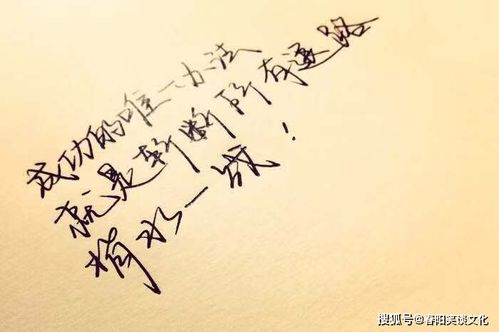 成功的唯一办法
就是斩断所有退路
背水一战！
搜狐号@春阳笑谈文化